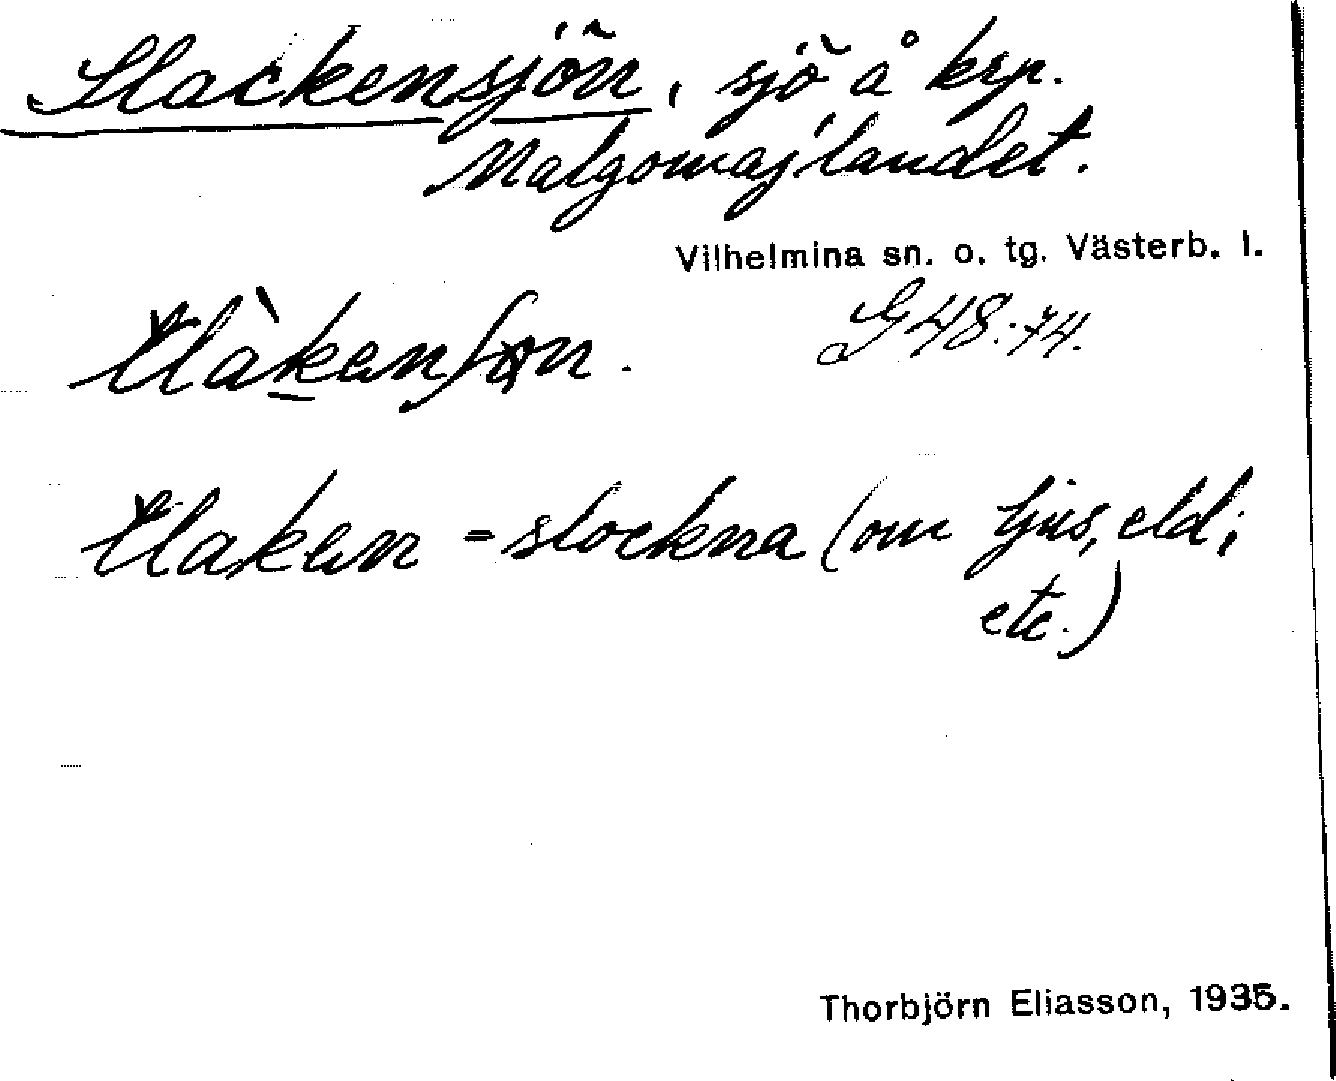 Slackensjön, sjö å krp.
Malgomajlandet.
Vilhelmina sn. o. tg. Västerb. l.
G 48:74.
slaken = slockna (om ljus, eld,
etc.)
Thorbjörn Eliasson, 1935.